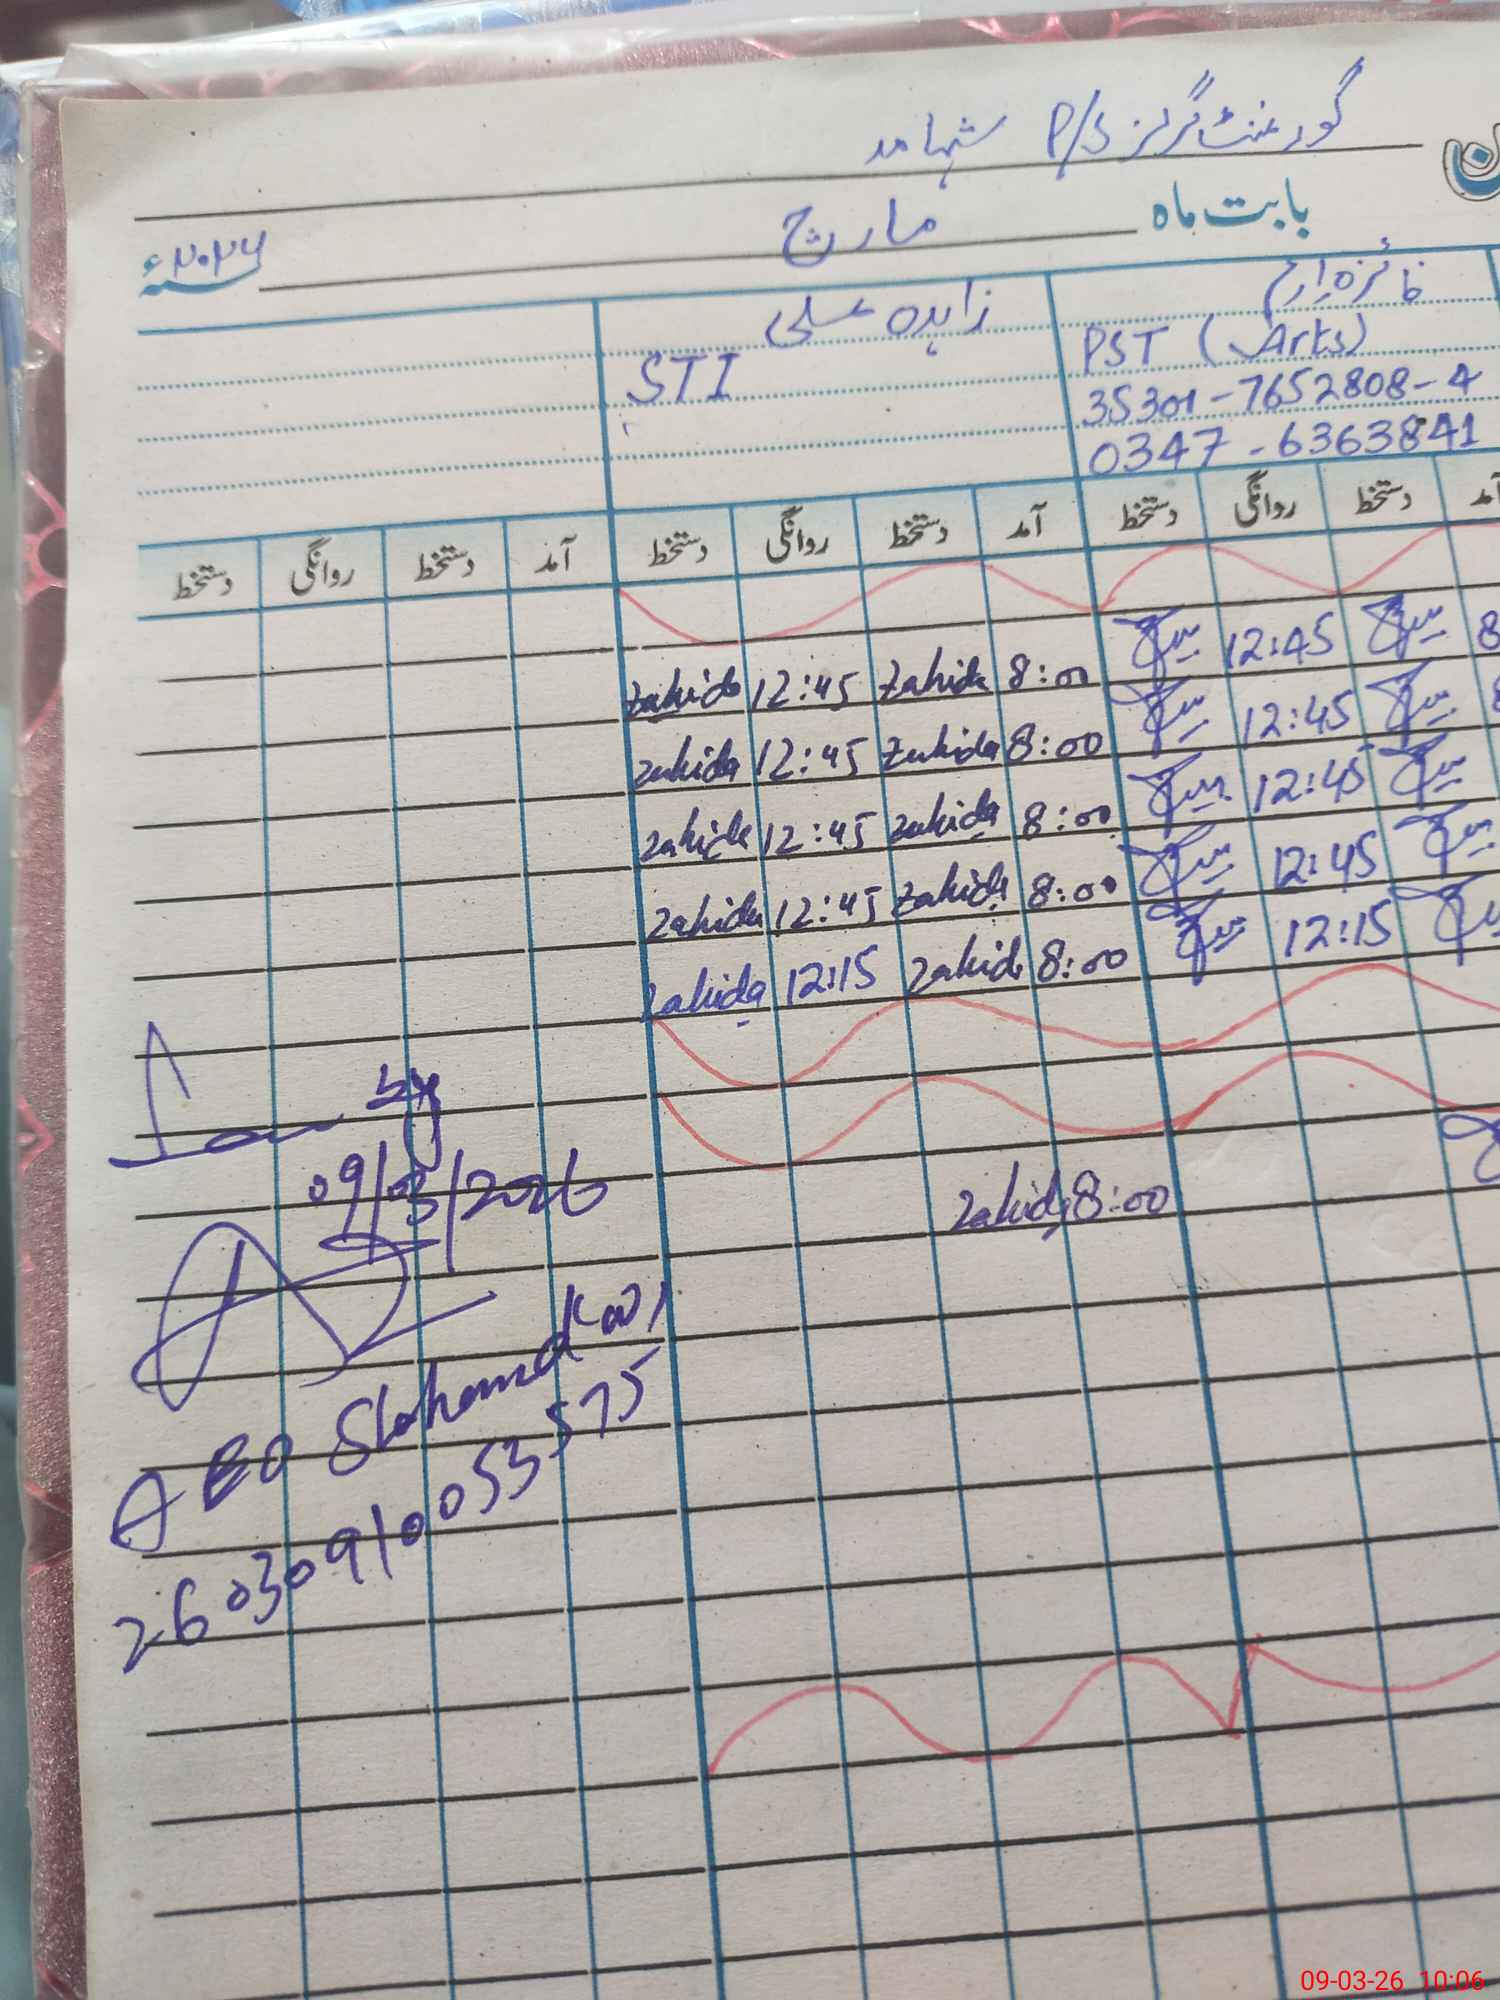 گورنمنٹ گرلز P/S شہامد
بابت ماہ مارچ ۲۰۲۶ء
فائزہ ارم
PST (Arts)
35301-7652808-4
0347-6363841
زاہدہ علی
STI
آمد دستخط روانگی دستخط آمد دستخط روانگی دستخط آمد دستخط روانگی دستخط
8 12:45 8:00 Zahida 12:45 Zahida
12:45 8:00 Zahida 12:45 Zahida
12:45 8:00 Zahida 12:45 Zahida
12:45 8:00 Zahida 12:45 Zahida
12:15 8:00 Zahida 12:15 Zahida
8:00 Zahida
by
09/03/2026
AEO Shahamd (W)
26030910053575
09-03-26 10:06